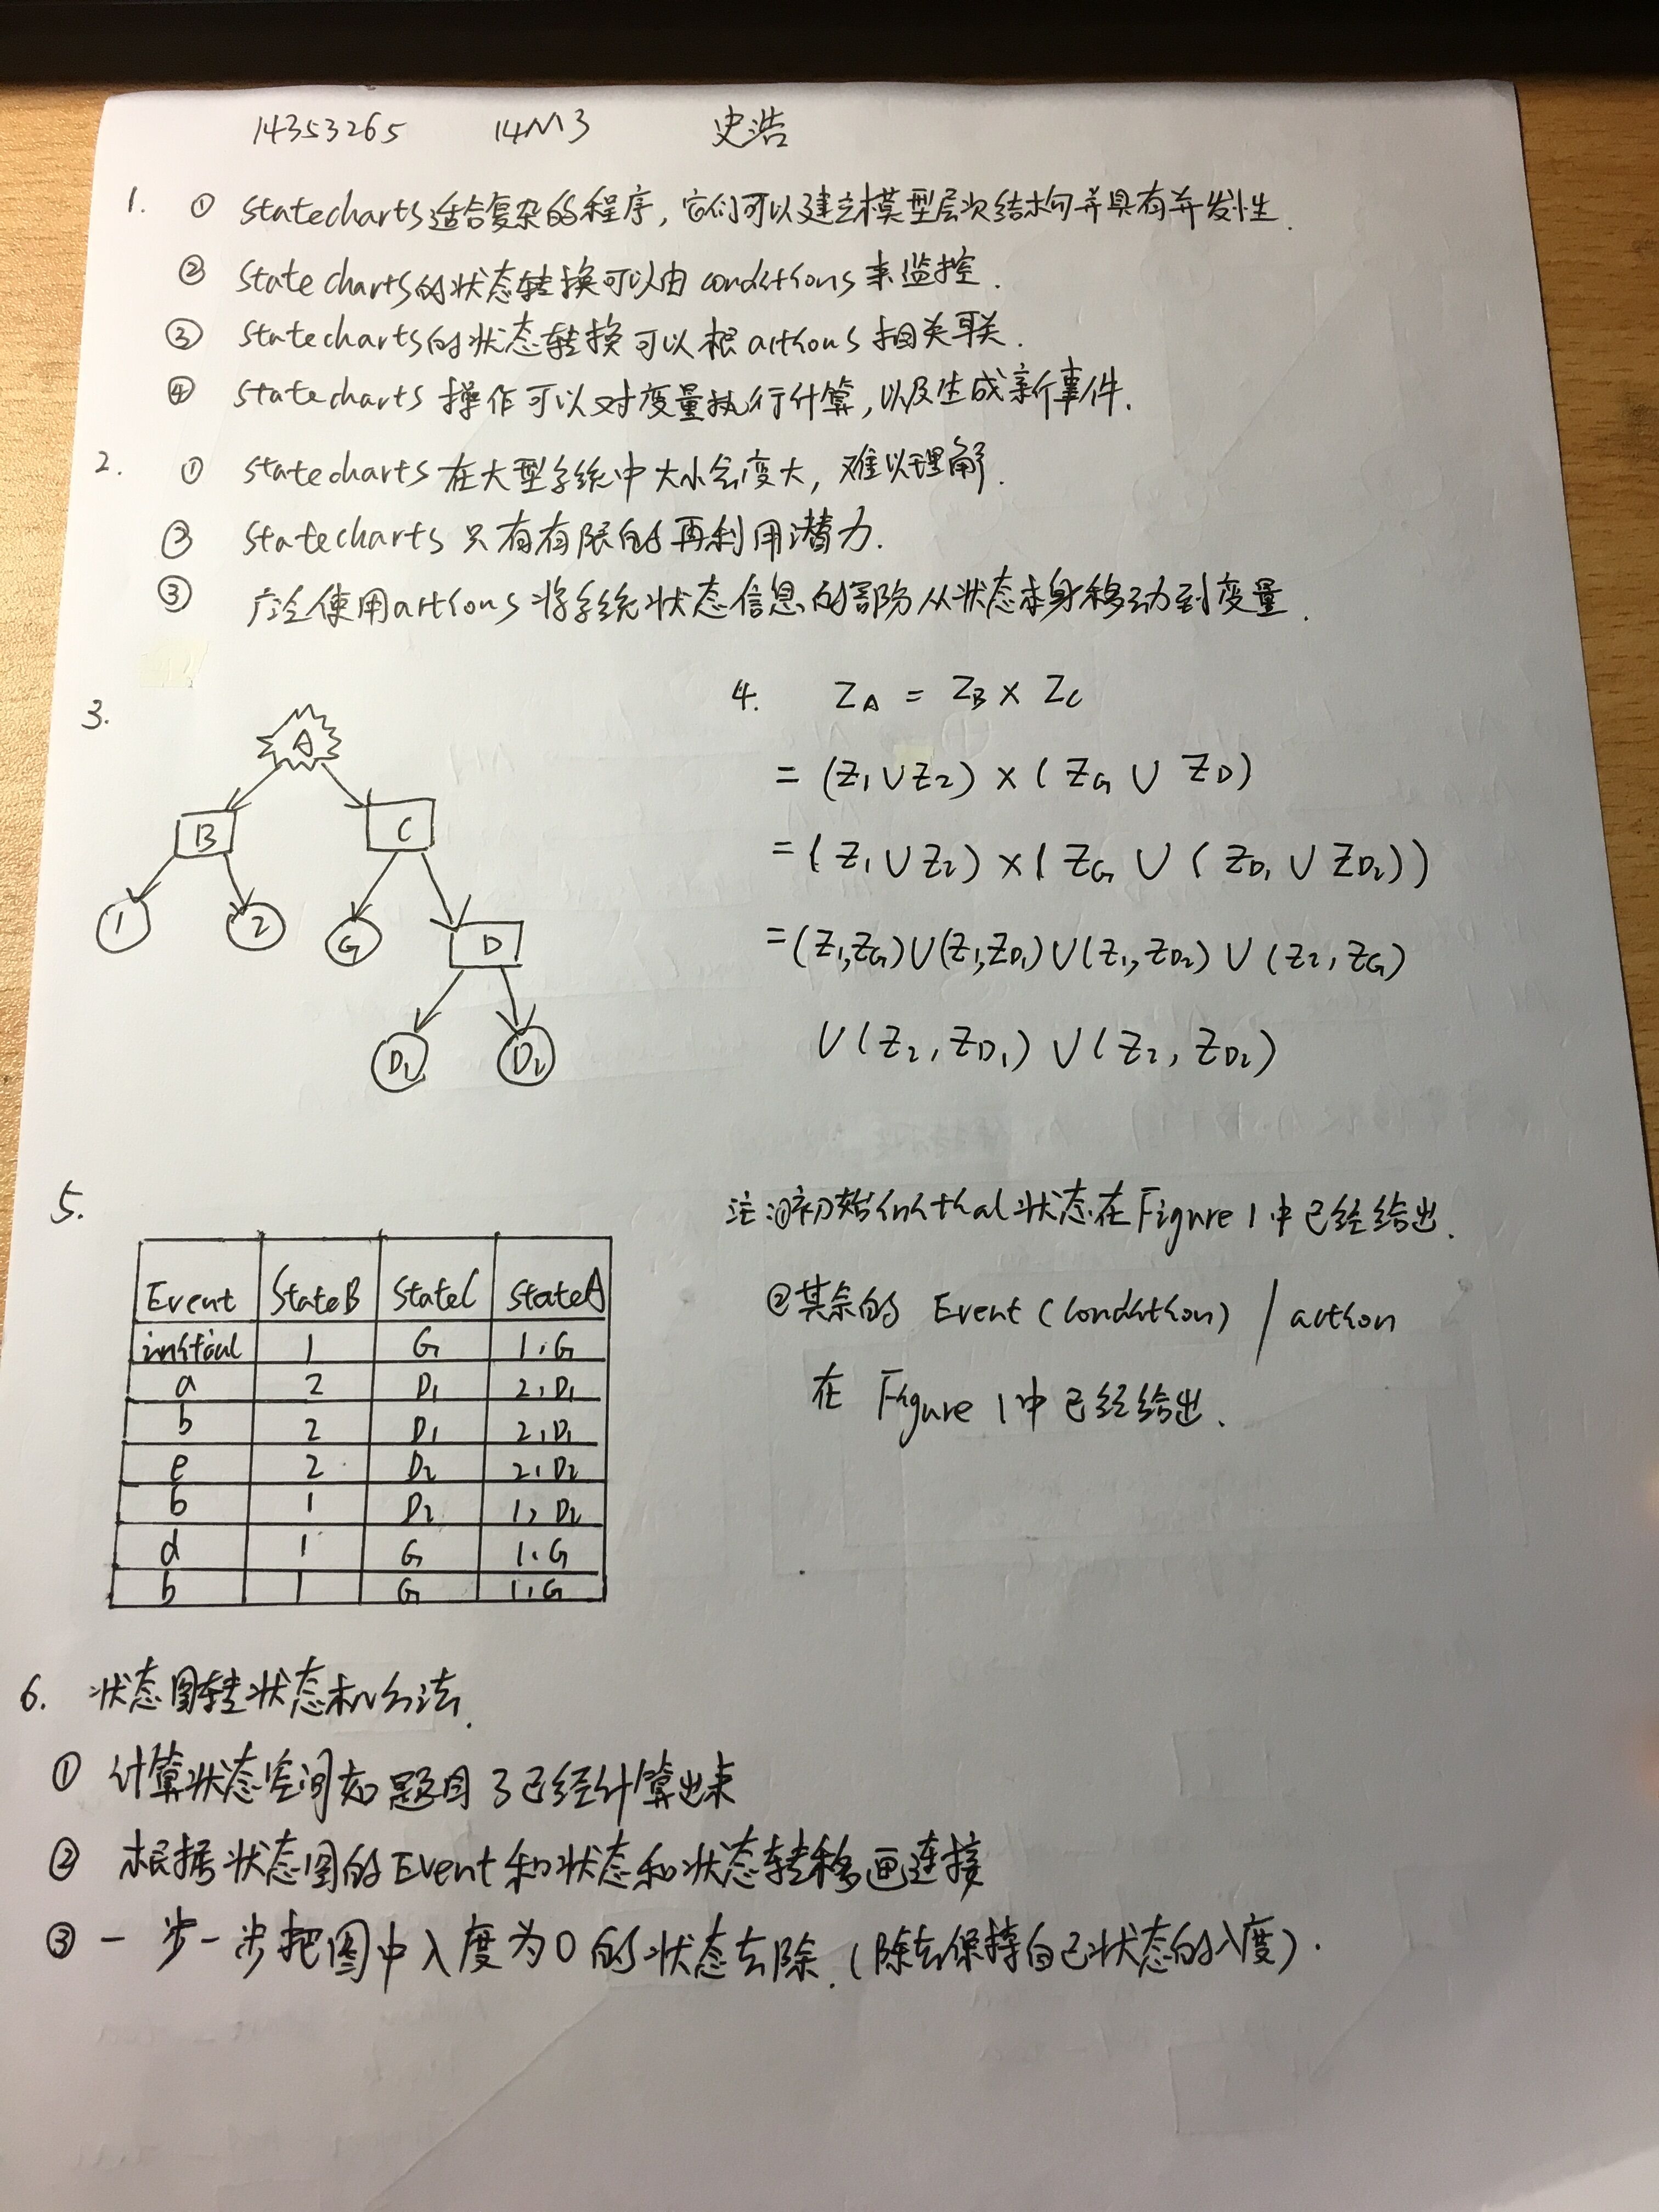 14353265 14M3 史浩
1. ① statecharts适合复杂的程序，它们可以建立模型层次结构并具有并发性.
② statecharts的状态转换可以由conditions来监控.
③ statecharts的状态转换可以根actions相关联.
④ statecharts操作可以对变量执行计算，以及生成新事件.
2. ① statecharts在大型系统中大小会变大，难以理解.
② statecharts只有有限的再利用潜力.
③ 广泛使用actions将系统状态信息的部分从状态本身移动到变量.
3.
A
B C
1 2 G D
D1 D2
4. ZA = ZB × ZC
= (Z1 ∪ Z2) × (ZG ∪ ZD)
= (Z1 ∪ Z2) × (ZG ∪ (ZD1 ∪ ZD2))
= (Z1,ZG) ∪ (Z1,ZD1) ∪ (Z1,ZD2) ∪ (Z2,ZG)
∪ (Z2,ZD1) ∪ (Z2,ZD2)
5.
Event StateB StateC StateA
initial 1 G 1,G
a 2 D1 2,D1
b 2 D1 2,D1
e 2 D2 2,D2
b 1 D2 1,D2
d 1 G 1,G
b 1 G 1,G
注:①初始initial状态在Figure 1中已经给出.
②其余的 Event (condition) / action
在 Figure 1中已经给出.
6. 状态图转状态机分法.
① 计算状态空间如题目3已经计算出来
② 根据状态图的Event和状态和状态转移画连接
③ 一步一步把图中入度为0的状态去除.(除去保持自己状态的入度).